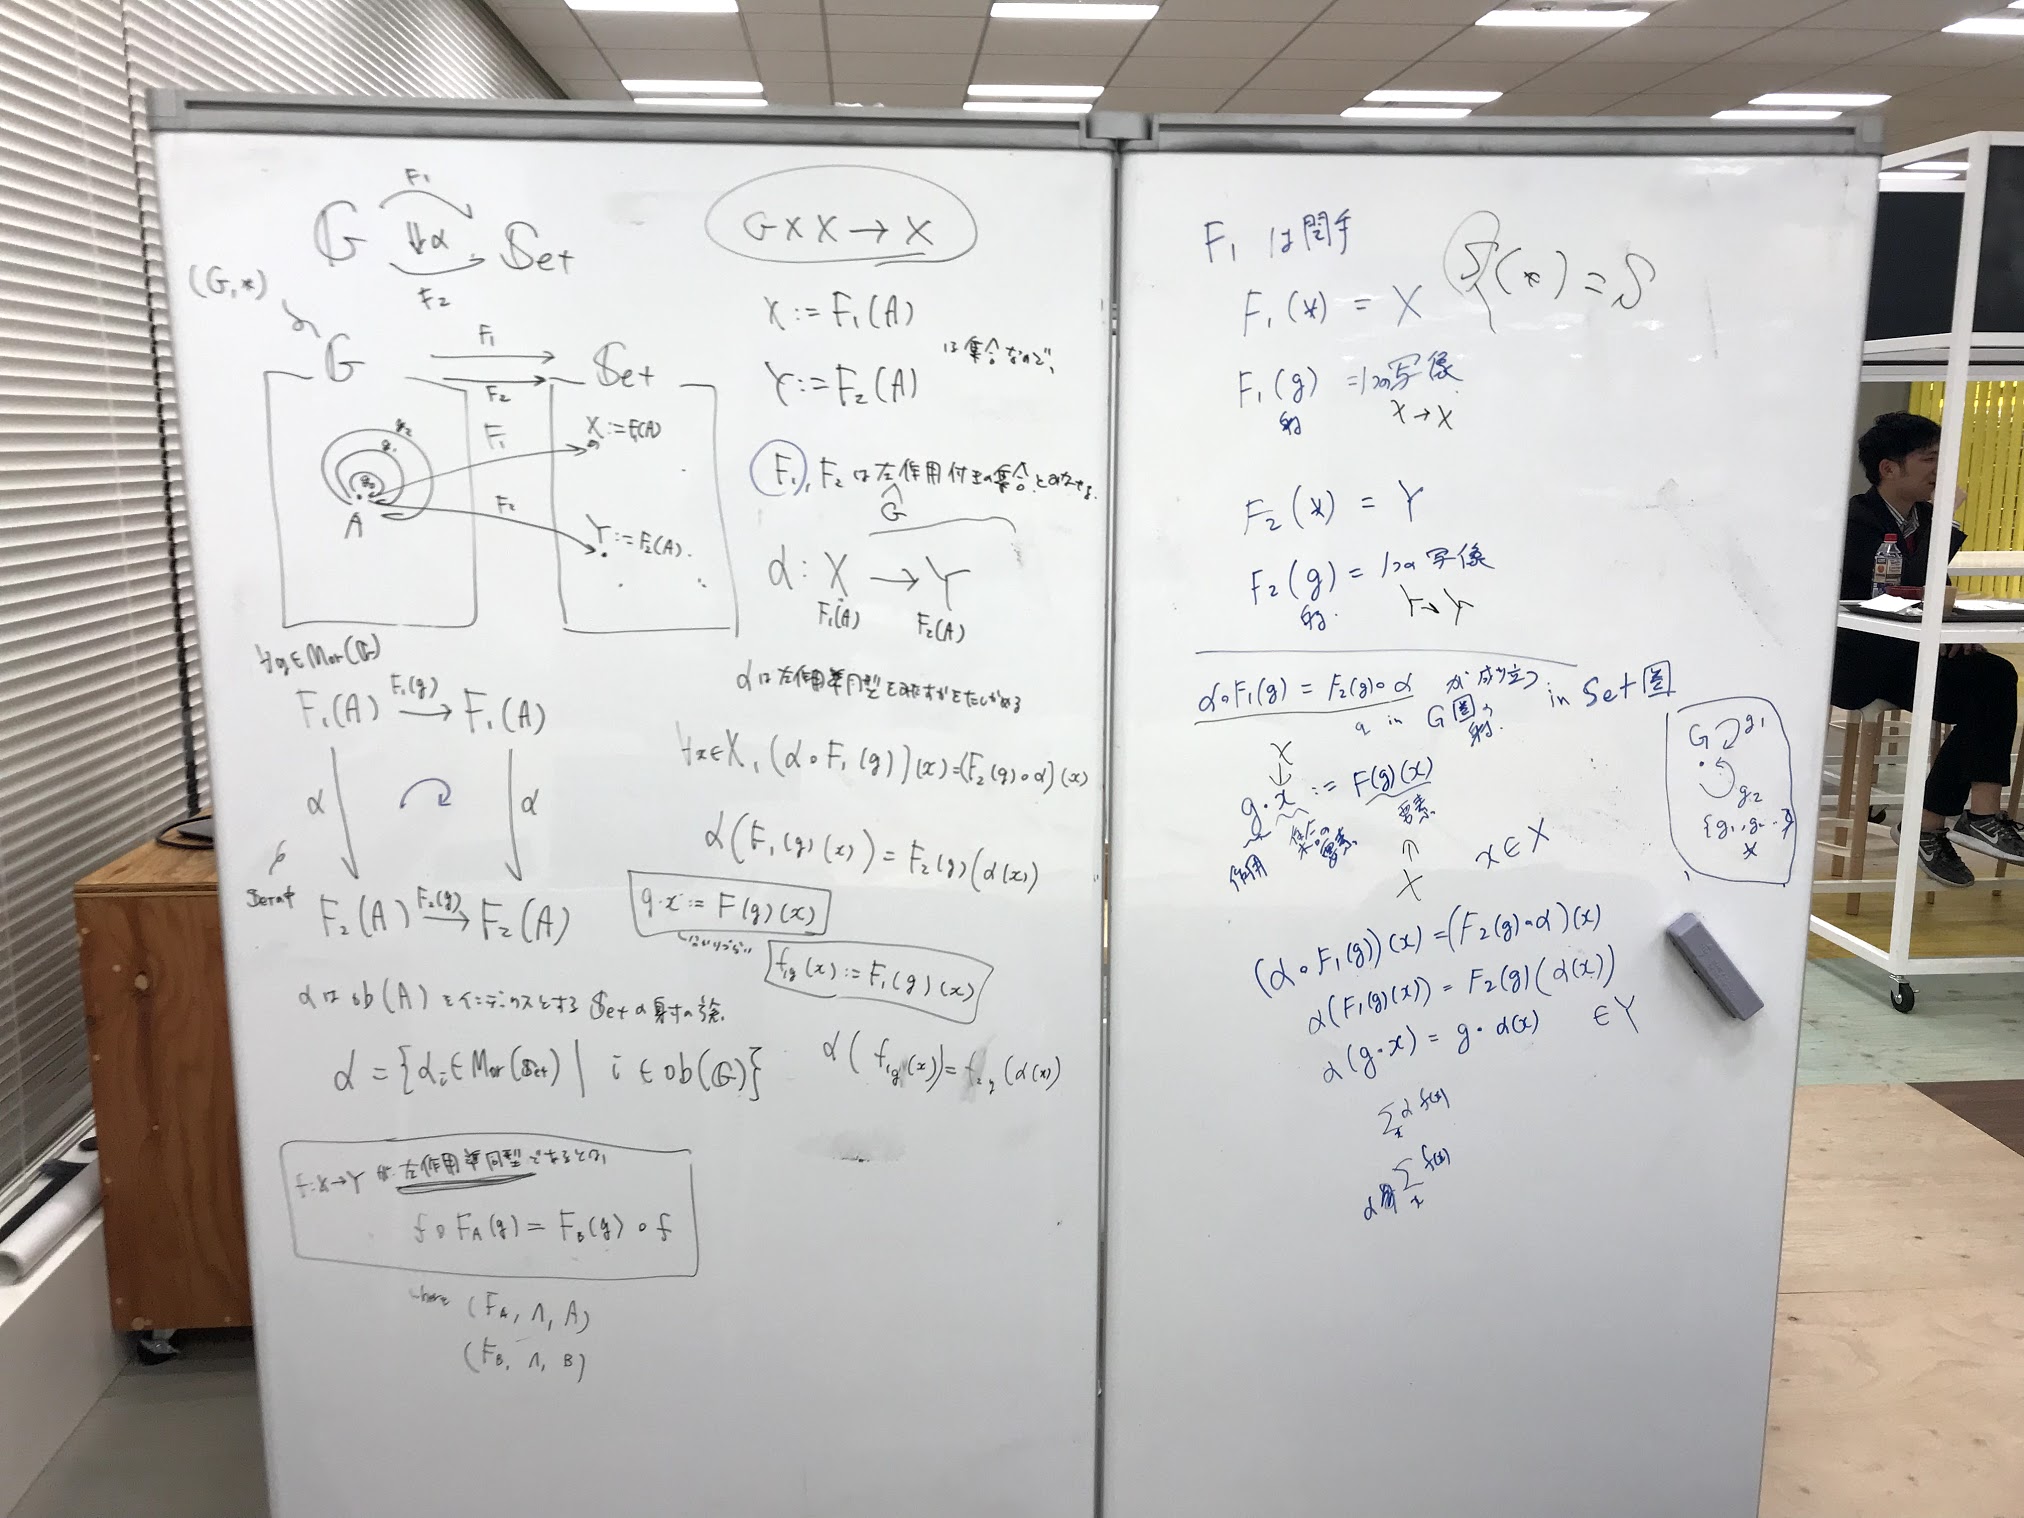 F₁
𝔾 ⇓α Set
F₂
(G,*)
𝔾 F₁ Set
F₂
g₂
g₁
g₀
A
F₁
X:=F₁(A)
F₂
Y:=F₂(A).
∀g∈Mor(𝔾)
F₁(A) F₁(g) → F₁(A)
α ↓ ↓ α
F₂(A) F₂(g) → F₂(A)
αは ob(A) をインデックスとする Setの射の族.
α = {αᵢ∈Mor(Set) | i ∈ ob(𝔾)}
f:X→Y が 左作用準同型であるとは,
f∘F_A(g) = F_B(g)∘f
where (F_A, Λ, A)
(F_B, Λ, B)
G×X→X
X:=F₁(A)
は集合なので,
Y:=F₂(A)
F₁, F₂ は左作用付きの集合とみなせる.
G
α : X → Y
F₁(A) F₂(A)
αは左作用準同型をみたすかをたしかめる
∀x∈X, (α∘F₁(g))(x)=(F₂(g)∘α)(x)
α(F₁(g)(x)) = F₂(g)(α(x))
g·x := F(g)(x)
f₁g(x) := F₁(g)(x)
α(f₁g(x)) = f₂g(α(x))
F₁ は関手
F₁(*) = X
S(*) = S
F₁(g) = 1つの写像
射 X→X
F₂(*) = Y
F₂(g) = 1つの写像
射. Y→Y
α∘F₁(g) = F₂(g)∘α が成り立つ in Set圏
g in G圏の射.
X
↓
g·x := F(g)(x)
作用 要素
↑
X
x∈X
G g₁
g₂
{g₁, g₂ ...}
*
(α∘F₁(g))(x) = (F₂(g)∘α)(x)
α(F₁(g)(x)) = F₂(g)(α(x))
α(g·x) = g·α(x) ∈Y
Σₓ α f(x)
α Σₓ f(x)